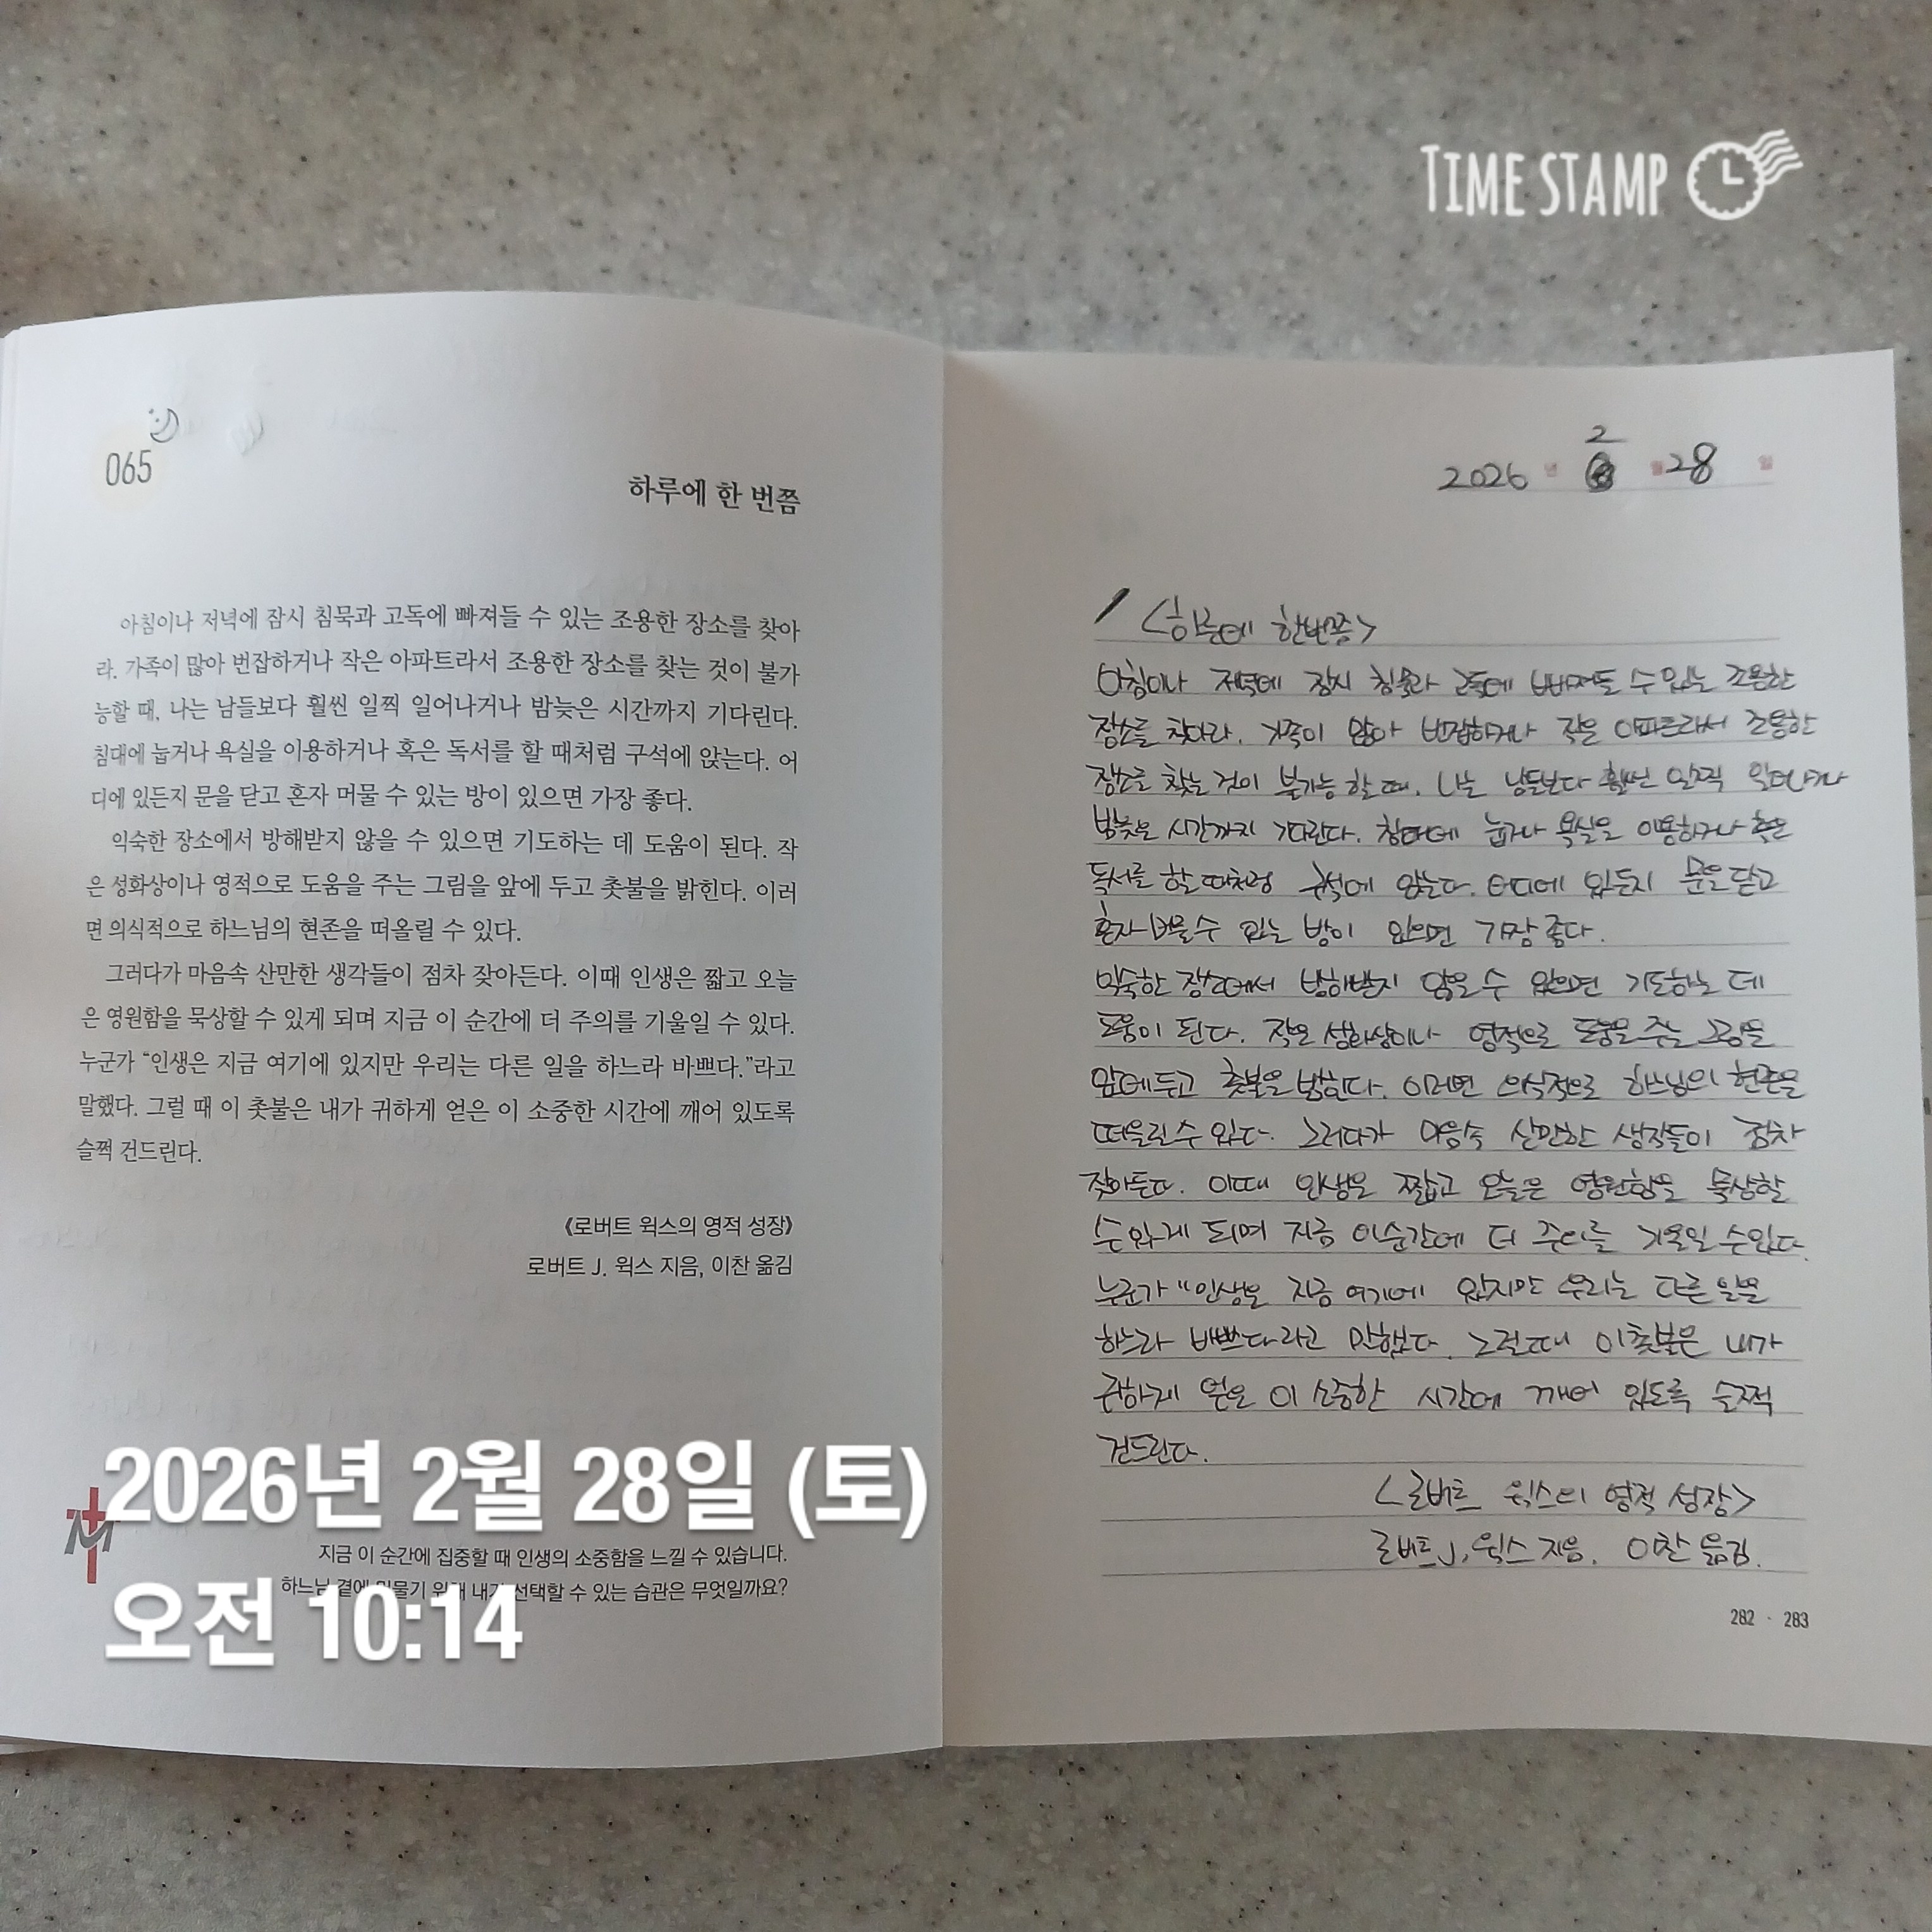 TIME STAMP
065
하루에 한 번쯤
아침이나 저녁에 잠시 침묵과 고독에 빠져들 수 있는 조용한 장소를 찾아
라. 가족이 많아 번잡하거나 작은 아파트라서 조용한 장소를 찾는 것이 불가
능할 때, 나는 남들보다 훨씬 일찍 일어나거나 밤늦은 시간까지 기다린다.
침대에 눕거나 욕실을 이용하거나 혹은 독서를 할 때처럼 구석에 앉는다. 어
디에 있든지 문을 닫고 혼자 머물 수 있는 방이 있으면 가장 좋다.
익숙한 장소에서 방해받지 않을 수 있으면 기도하는 데 도움이 된다. 작
은 성화상이나 영적으로 도움을 주는 그림을 앞에 두고 촛불을 밝힌다. 이러
면 의식적으로 하느님의 현존을 떠올릴 수 있다.
그러다가 마음속 산만한 생각들이 점차 잦아든다. 이때 인생은 짧고 오늘
은 영원함을 묵상할 수 있게 되며 지금 이 순간에 더 주의를 기울일 수 있다.
누군가 “인생은 지금 여기에 있지만 우리는 다른 일을 하느라 바쁘다.”라고
말했다. 그럴 때 이 촛불은 내가 귀하게 얻은 이 소중한 시간에 깨어 있도록
슬쩍 건드린다.
《로버트 윅스의 영적 성장》
로버트 J. 윅스 지음, 이찬 옮김
지금 이 순간에 집중할 때 인생의 소중함을 느낄 수 있습니다.
하느님 곁에 머물기 위해 내가 선택할 수 있는 습관은 무엇일까요?
2026년 2월 28일 (토)
오전 10:14
2
2026 년 월 28 일
<하루에 한번쯤>
아침이나 저녁에 잠시 침묵과 고독에 빠져들 수 있는 조용한
장소를 찾아라. 가족이 많아 번잡하거나 작은 아파트라서 조용한
장소를 찾는 것이 불가능 할 때. 나는 남들보다 훨씬 일찍 일어나거나
밤늦은 시간까지 기다린다. 침대에 눕거나 욕실을 이용하거나 혹은
독서를 할 때처럼 구석에 앉는다. 어디에 있든지 문을 닫고
혼자 머물 수 있는 방이 있으면 가장 좋다.
익숙한 장소에서 방해받지 않을 수 있으면 기도하는 데
도움이 된다. 작은 성화상이나 영적으로 도움을 주는 그림을
앞에 두고 촛불을 밝힌다. 이러면 의식적으로 하느님의 현존을
떠올릴 수 있다. 그러다가 마음속 산만한 생각들이 점차
잦아든다. 이때 인생은 짧고 오늘은 영원함을 묵상할
수 있게 되며 지금 이 순간에 더 주의를 기울일 수 있다.
누군가 “인생은 지금 여기에 있지만 우리는 다른 일을
하느라 바쁘다라고 말했다. 그럴 때 이 촛불은 내가
귀하게 얻은 이 소중한 시간에 깨어 있도록 슬쩍
건드린다.
<로버트 윅스의 영적 성장>
로버트 J. 윅스 지음. 이찬 옮김.
282 · 283